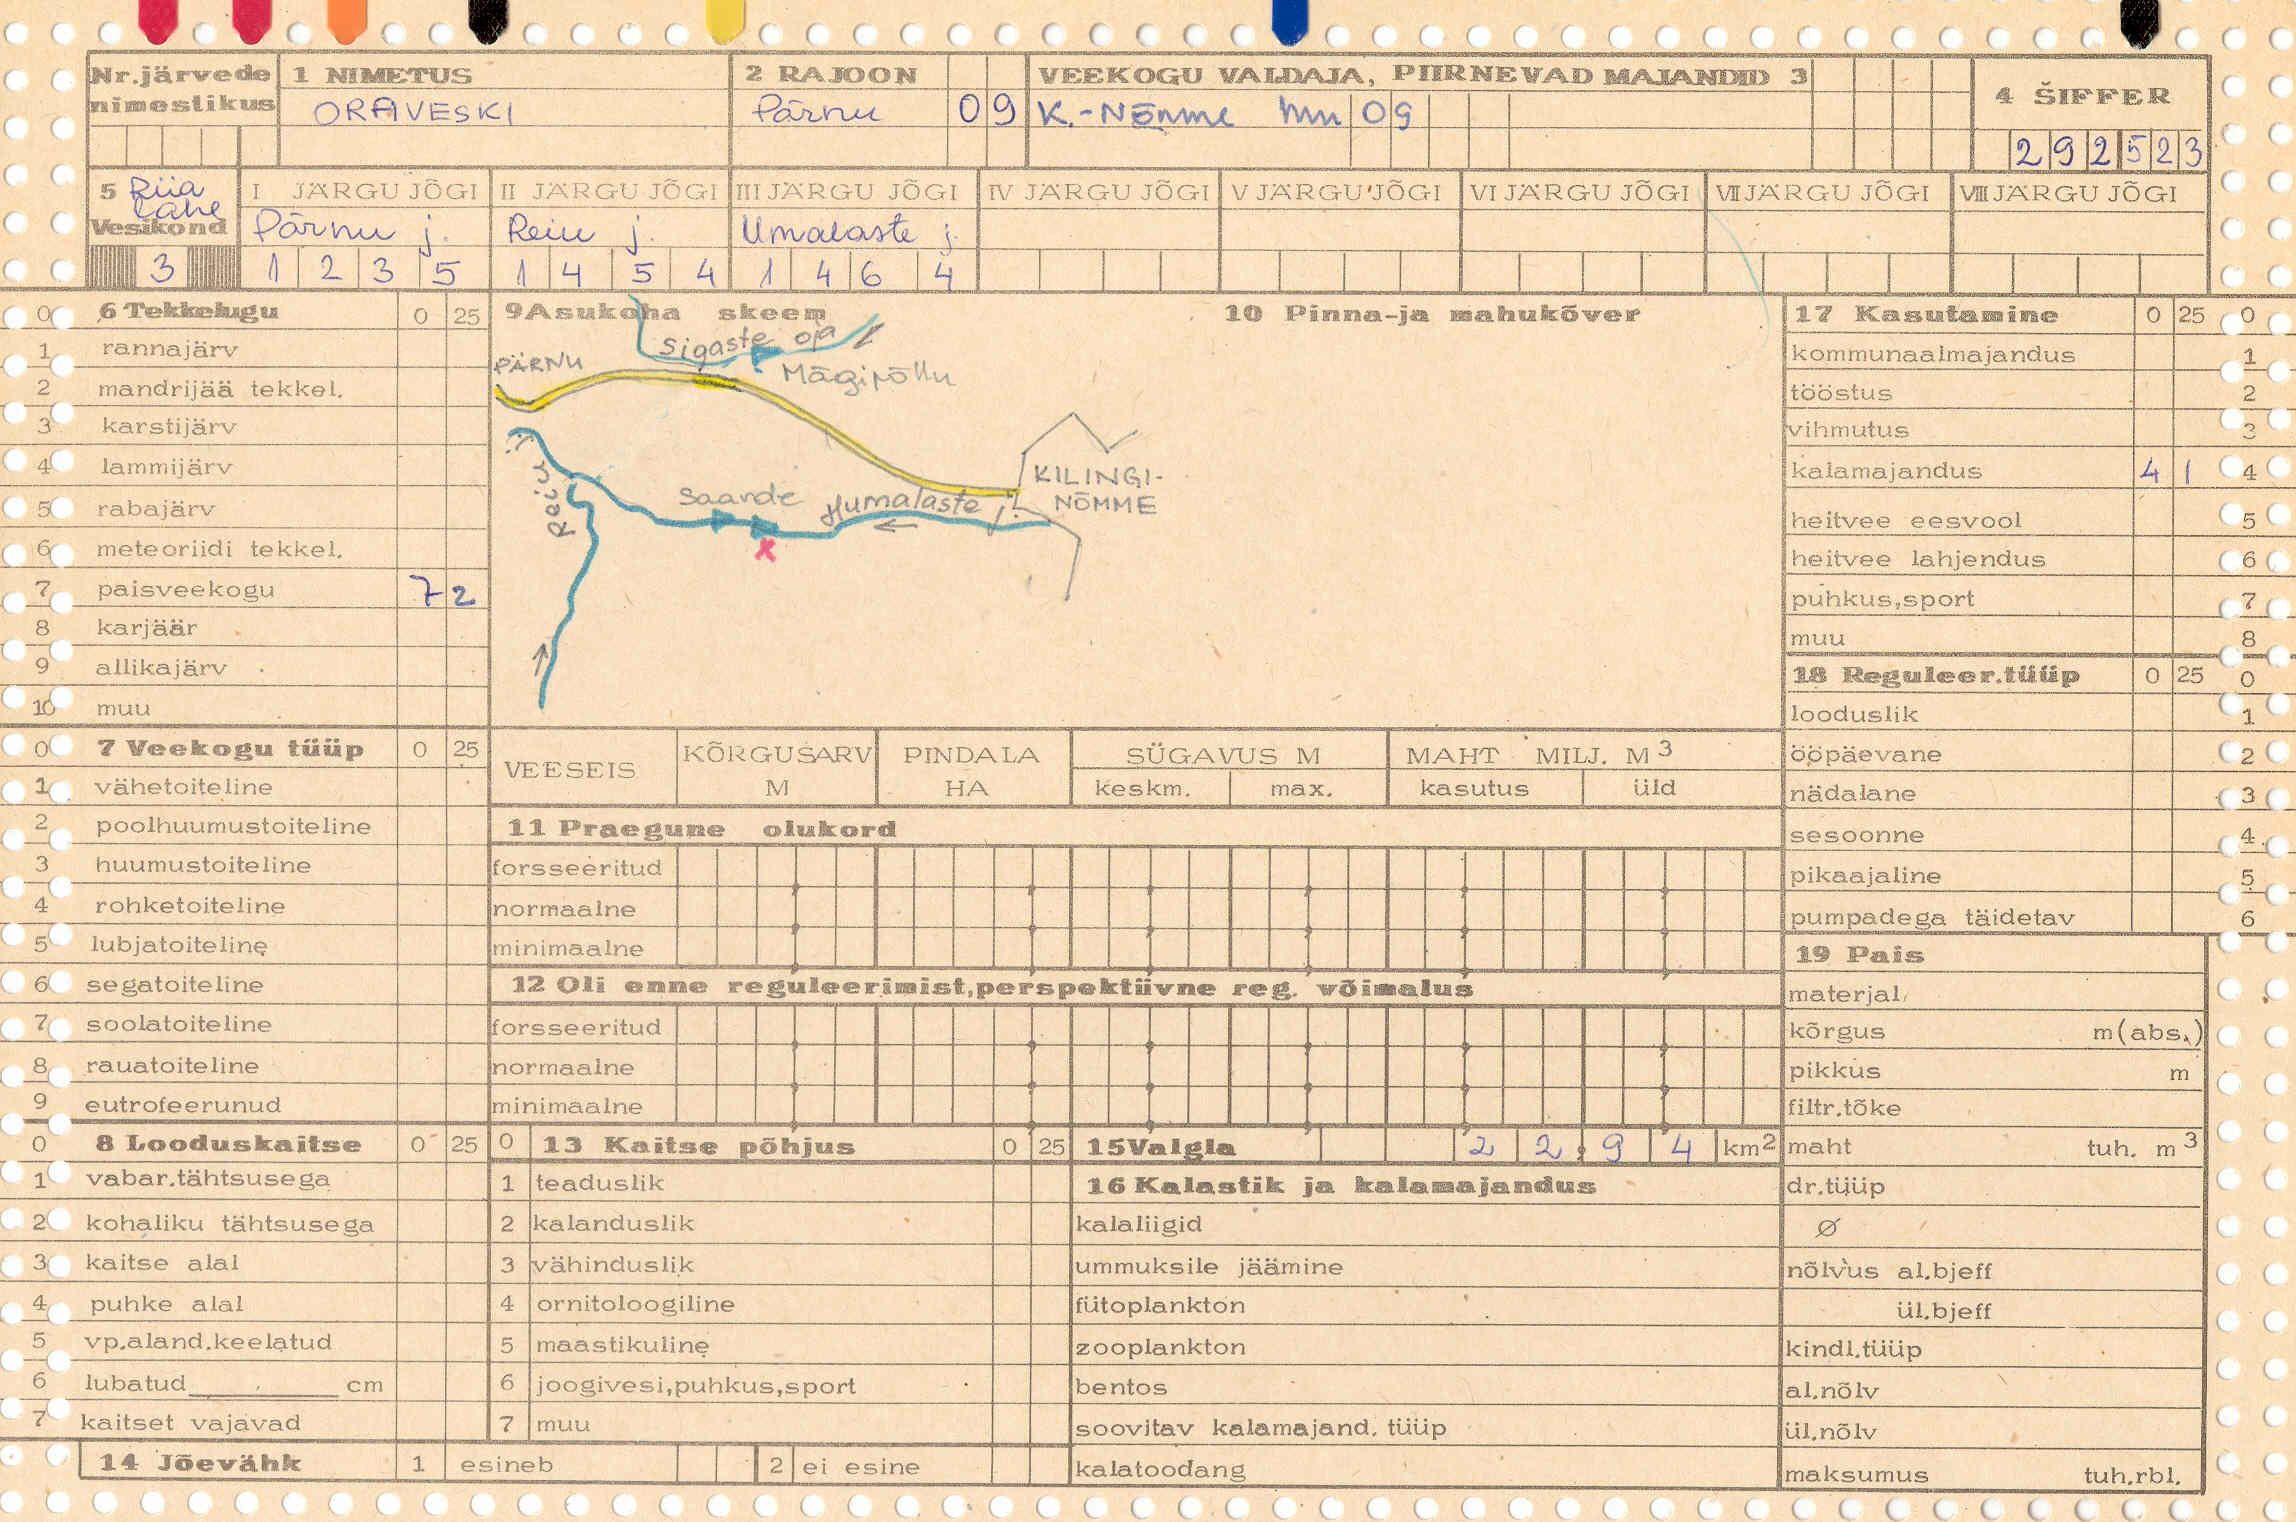 Nr.järvede nimestikus
1 NIMETUS
ORAVESKI
2 RAJOON
Pärnu 09
VEEKOGU VALDAJA, PIIRNEVAD MAJANDID 3
K.-Nõmme mn 09
4 ŠIFFER
292523
5 Riia lahe
Vesikond
3
I JÄRGU JÕGI
Pärnu j.
1 2 3 5
II JÄRGU JÕGI
Reiu j.
1 4 5 4
III JÄRGU JÕGI
Umalaste j.
1 4 6 4
IV JÄRGU JÕGI
V JÄRGU JÕGI
VI JÄRGU JÕGI
VII JÄRGU JÕGI
VIII JÄRGU JÕGI
0 6 Tekkelugu 0 25
1 rannajärv
2 mandrijää tekkel.
3 karstijärv
4 lammijärv
5 rabajärv
6 meteoriidi tekkel.
7 paisveekogu 7 2
8 karjäär
9 allikajärv
10 muu
0 7 Veekogu tüüp 0 25
1 vähetoiteline
2 poolhuumustoiteline
3 huumustoiteline
4 rohketoiteline
5 lubjatoiteline
6 segatoiteline
7 soolatoiteline
8 rauatoiteline
9 eutrofeerunud
0 8 Looduskaitse 0 25
1 vabar.tähtsusega
2 kohaliku tähtsusega
3 kaitse alal
4 puhke alal
5 vp.aland.keelatud
6 lubatud cm
7 kaitset vajavad
9 Asukoha skeem
Sigaste oja
PÄRNU
Mägipõllu
KILINGI-
NÕMME
Reiu
Saarde
Humalaste j.
x
10 Pinna-ja mahukõver
VEESEIS
KÕRGUSARV M
PINDALA HA
SÜGAVUS M
keskm. max.
MAHT MILJ. M3
kasutus üld
11 Praegune olukord
forsseeritud
normaalne
minimaalne
12 Oli enne reguleerimist,perspektiivne reg. võimalus
forsseeritud
normaalne
minimaalne
0 13 Kaitse põhjus 0 25
1 teaduslik
2 kalanduslik
3 vähinduslik
4 ornitoloogiline
5 maastikuline
6 joogivesi,puhkus,sport
7 muu
14 Jõevähk 1 esineb 2 ei esine
15 Valgla 2 2, 9 4 km2
16 Kalastik ja kalamajandus
kalaliigid
ummuksile jäämine
fütoplankton
zooplankton
bentos
soovitav kalamajand. tüüp
kalatoodang
17 Kasutamine 0 25 0
kommunaalmajandus 1
tööstus 2
vihmutus 3
kalamajandus 4 1 4
heitvee eesvool 5
heitvee lahjendus 6
puhkus,sport 7
muu 8
18 Reguleer.tüüp 0 25 0
looduslik 1
ööpäevane 2
nädalane 3
sesoonne 4
pikaajaline 5
pumpadega täidetav 6
19 Pais
materjal
kõrgus m(abs.)
pikkus m
filtr.tõke
maht tuh. m3
dr.tüüp
Ø
nõlvus al.bjeff
ül.bjeff
kindl.tüüp
al.nõlv
ül.nõlv
maksumus tuh.rbl.